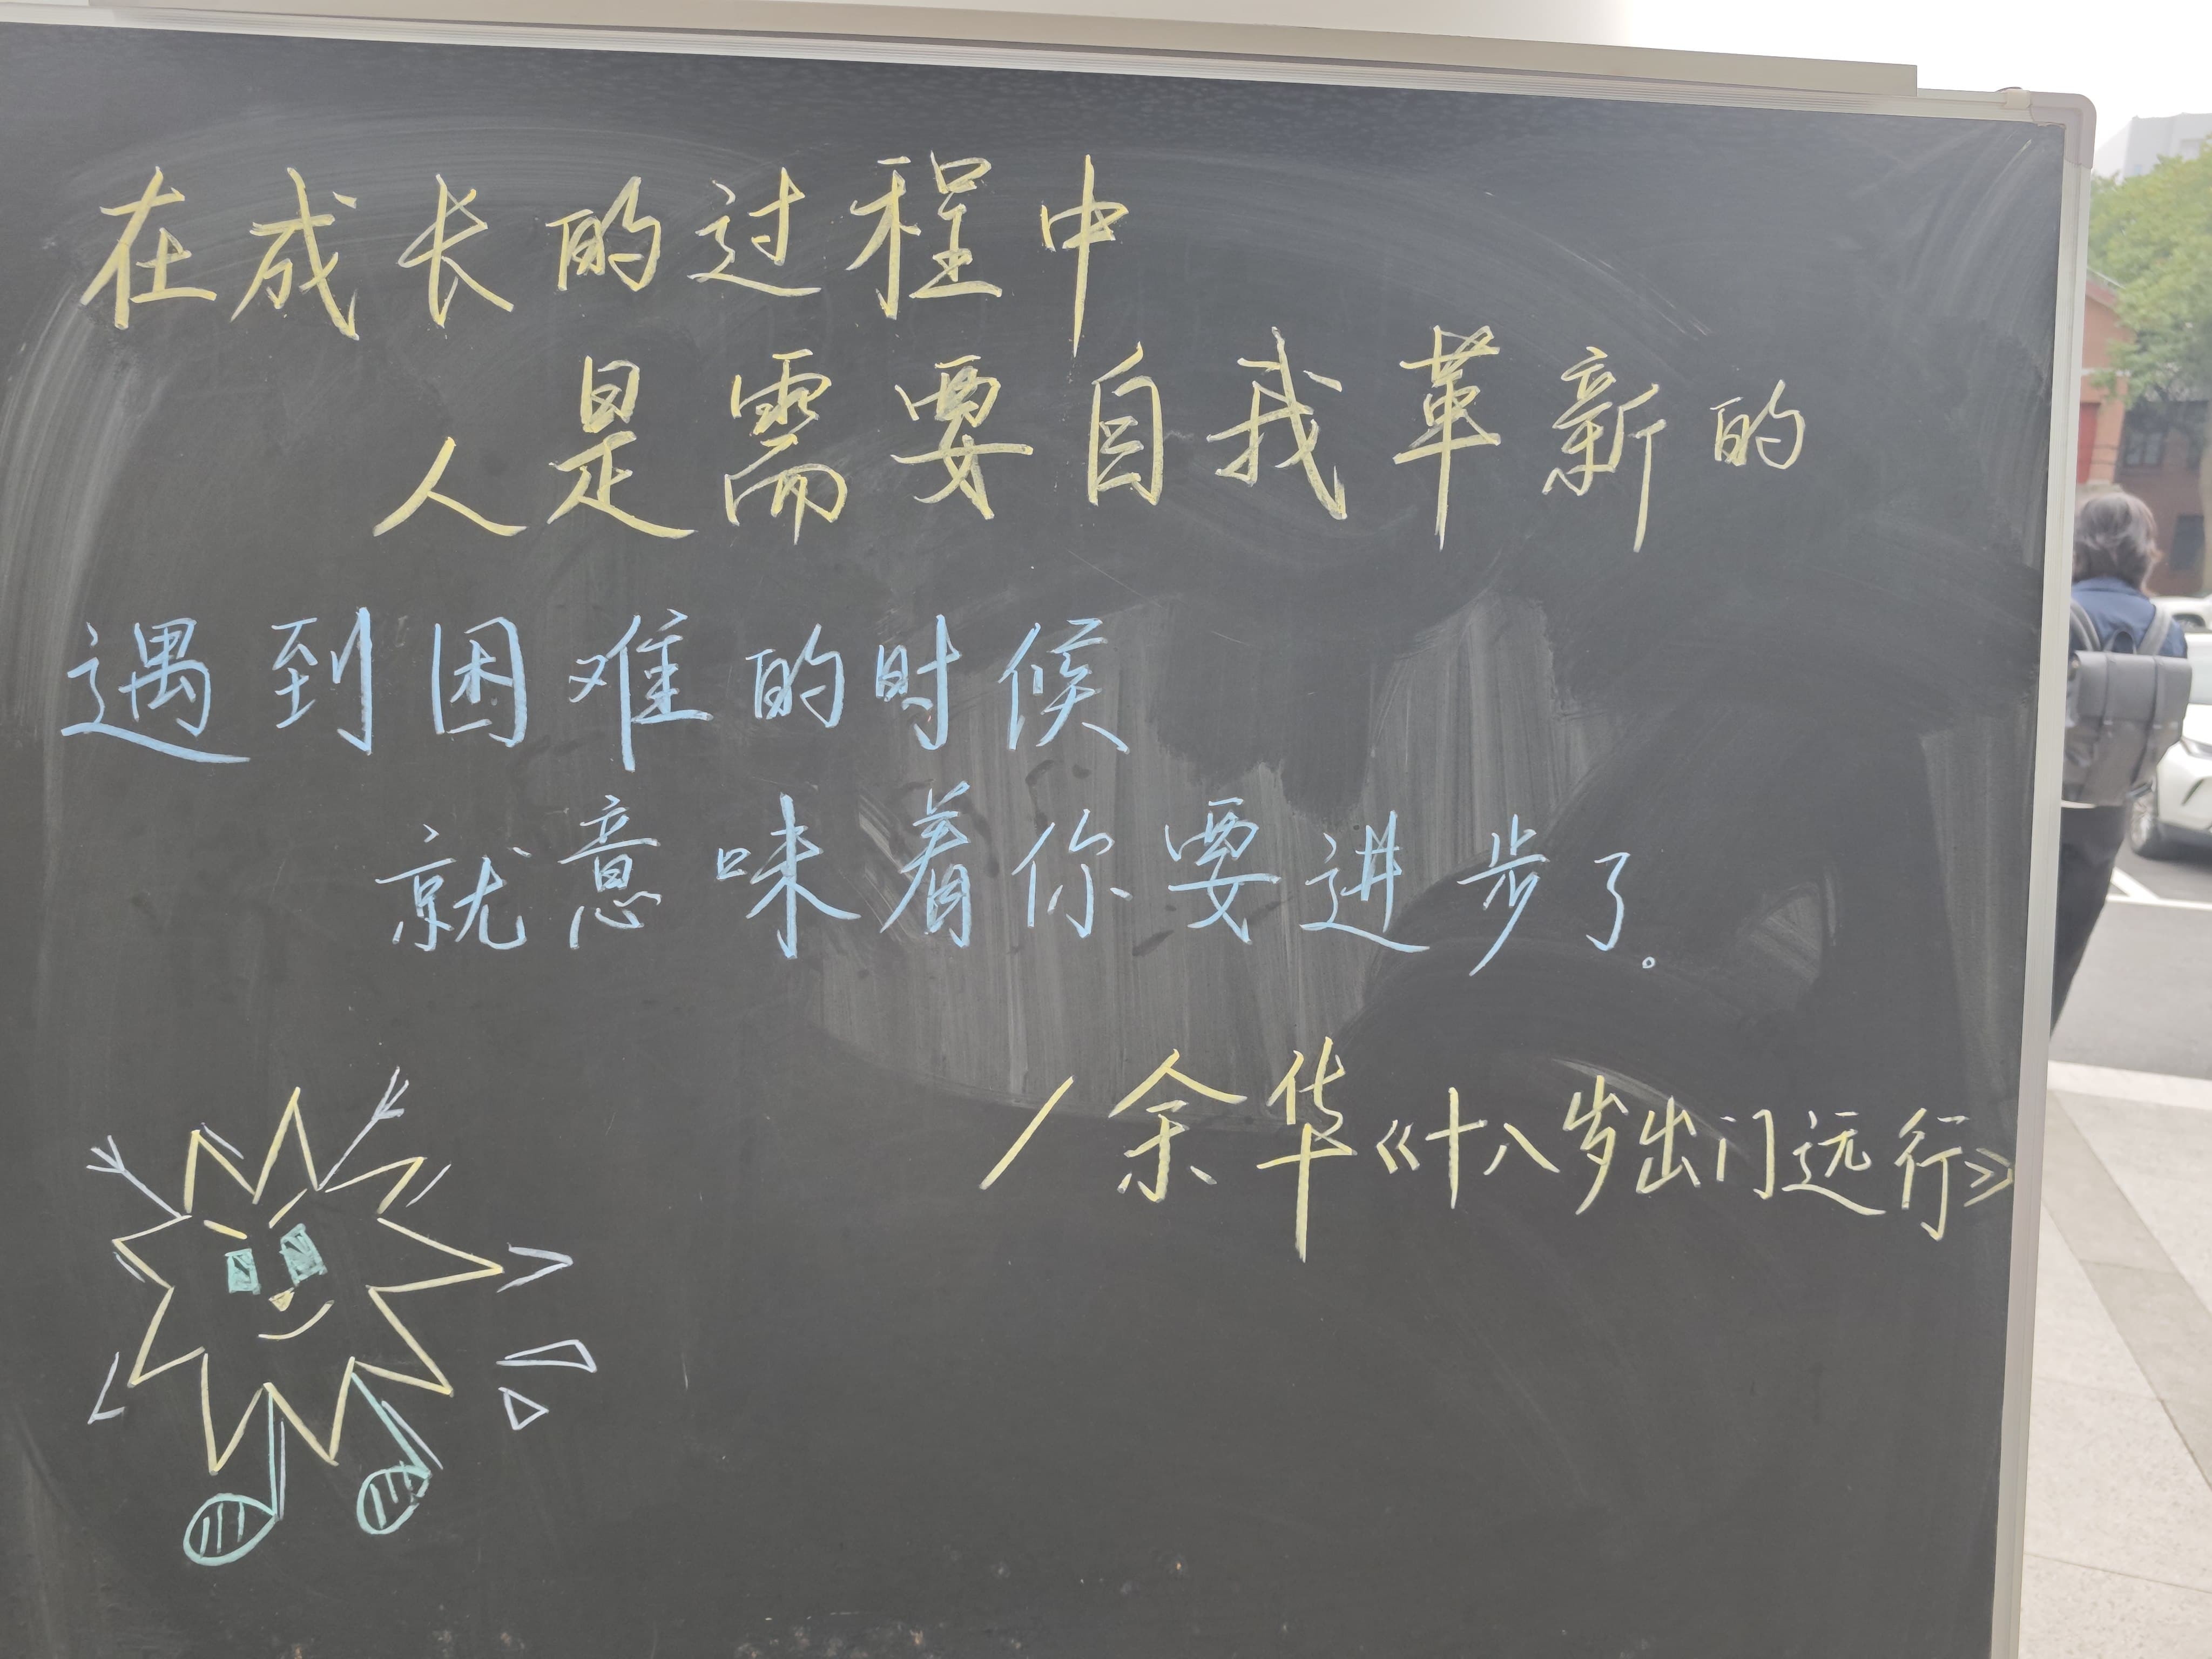 在成长的过程中
人是需要自我革新的
遇到困难的时候
就意味着你要进步了。
/余华《十八岁出门远行》